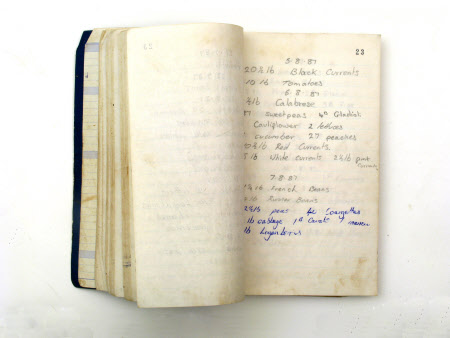 23
5.8.87
20½lb Black Currents
10lb Tomatoes
6.8.87
½lb Calabrese
87 sweetpeas 4 Gladioli
Cauliflower 2 lettuces
cucumber 27 peaches
½lb Red Currents
lb White Currents 2½lb pink Currents
7.8.87
½lb French Beans
lb Runner Beans
2½lb peas 4lb Courgettes
lb cabbage 1lb Carrots 1 marrow
lb